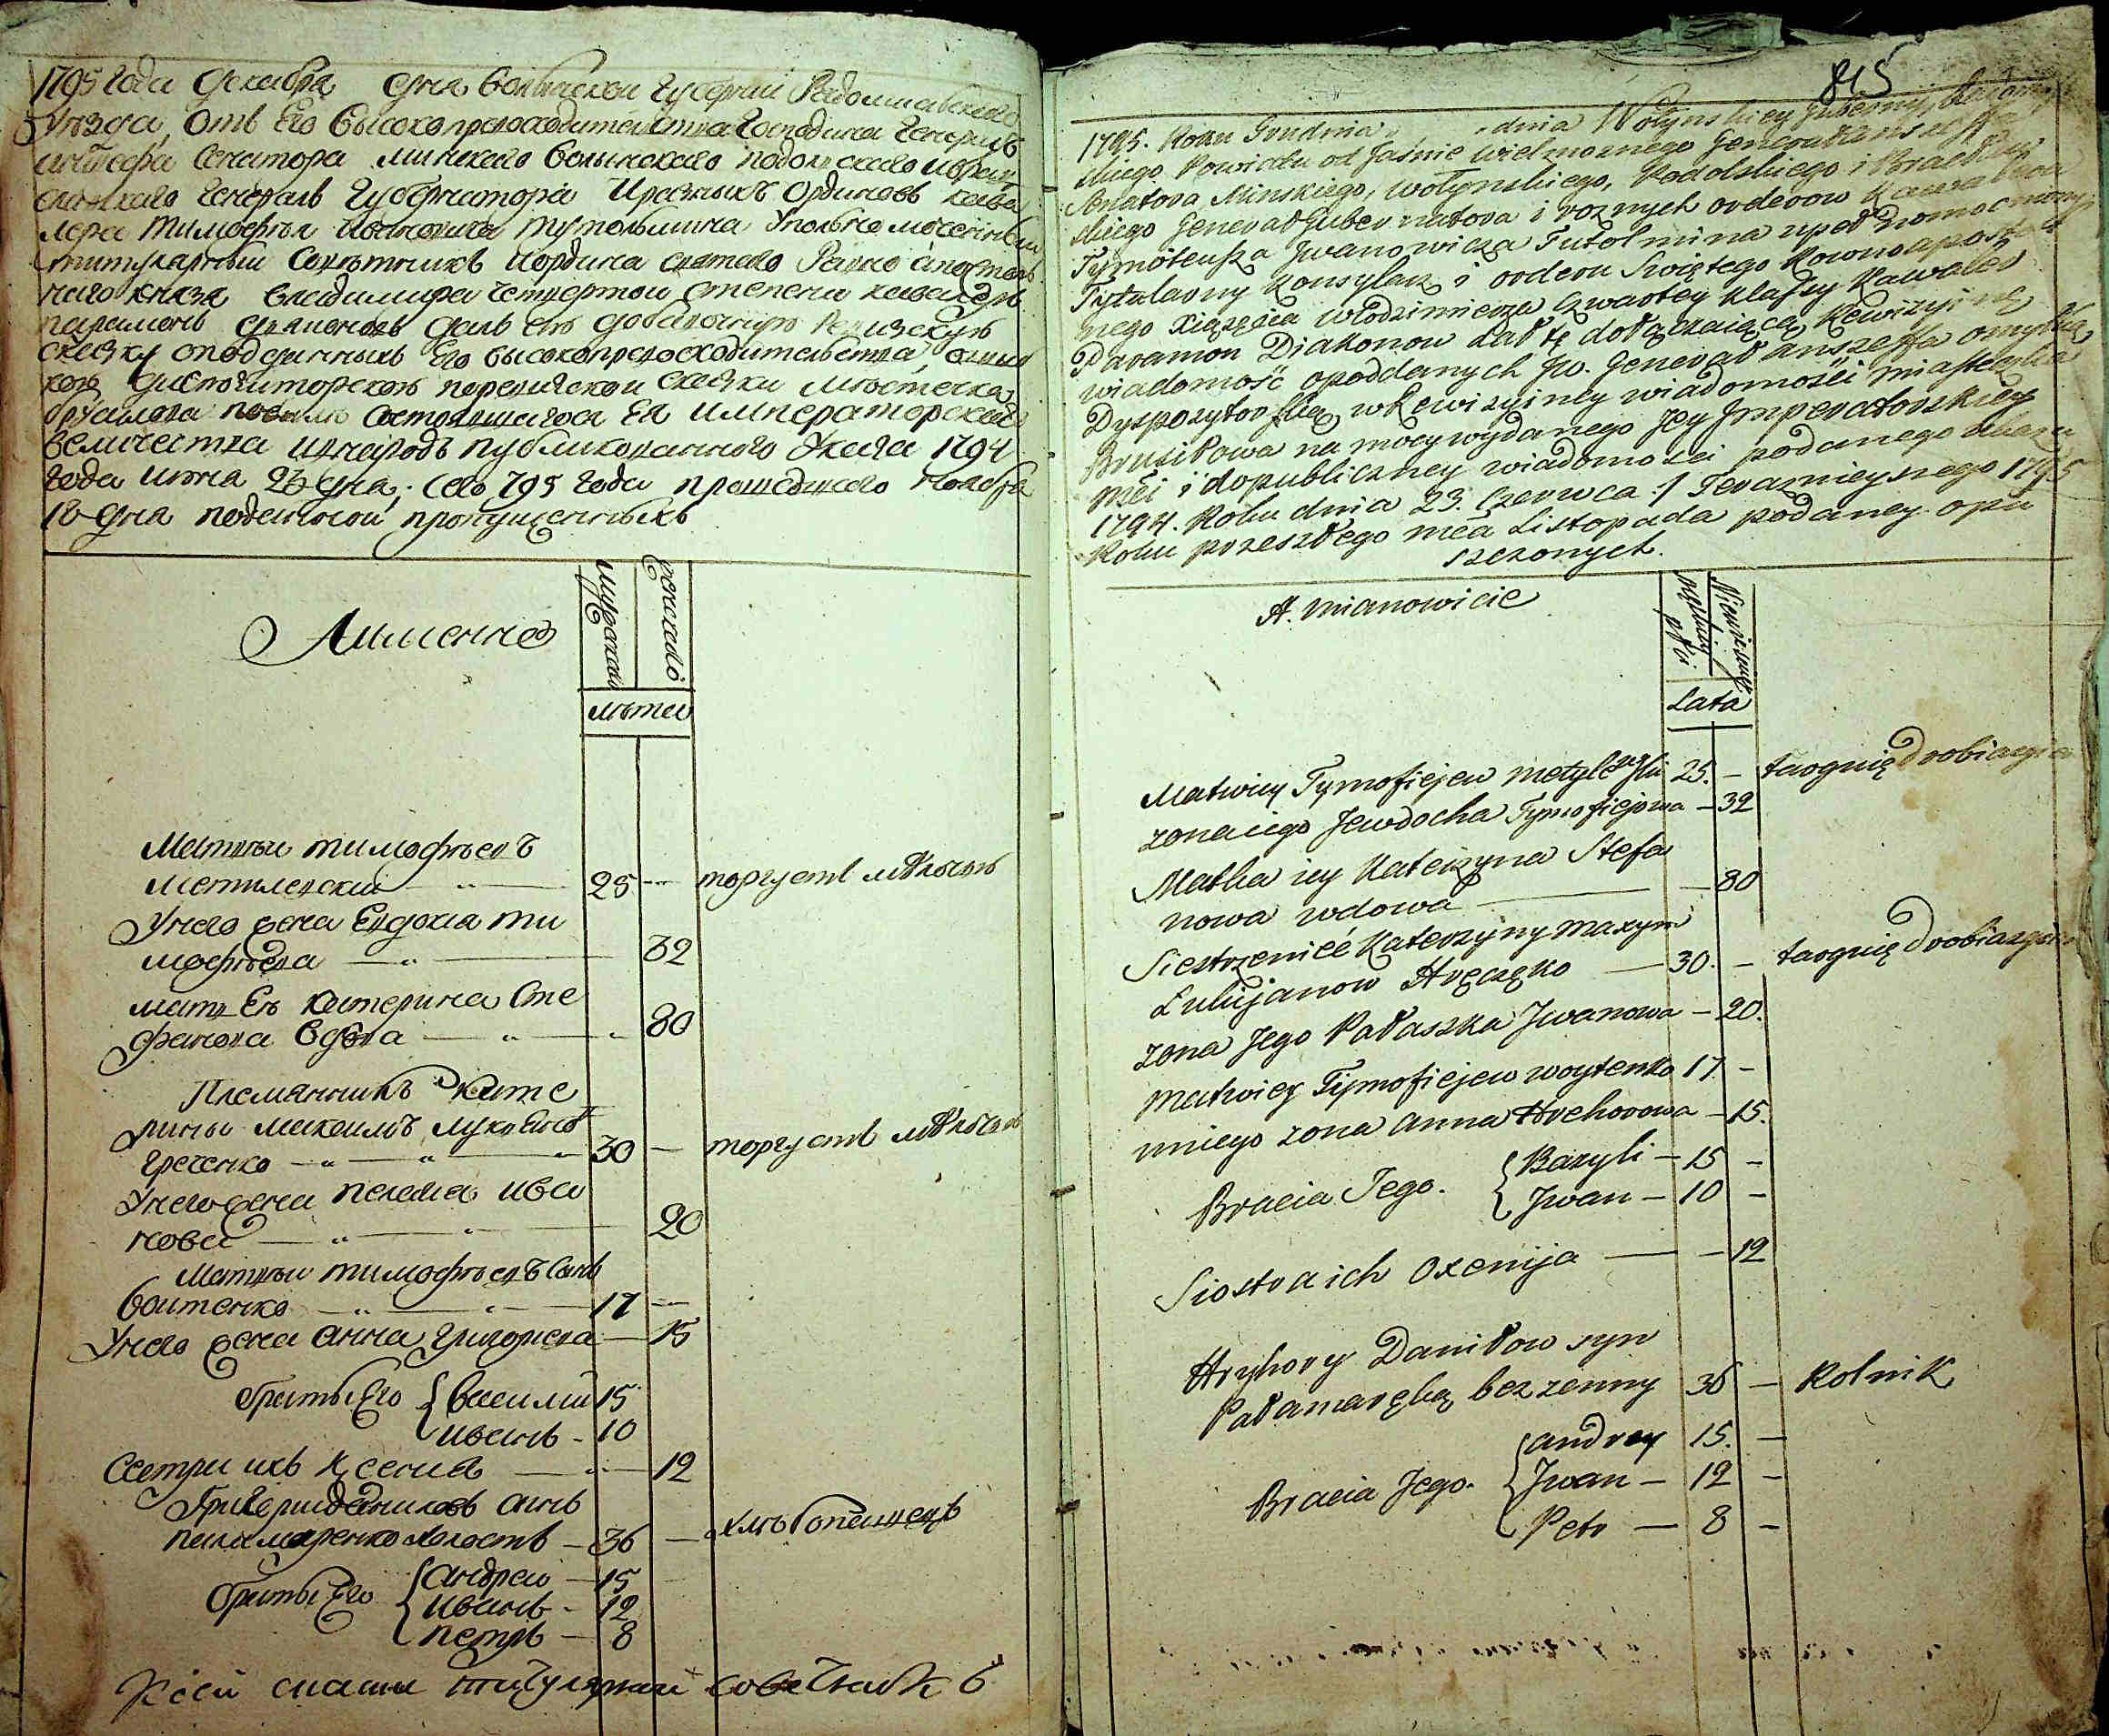 1795 года декабря дня Волынской губернии Радомисльского
Уезда, отъ Его Высокопревосходительства Господина Генералъ
аншефа Сенатора Минского Волынского Подолского и брац
славского Генералъ Губернатора И разныхъ Ординовъ кава
лера Тимофѣя Ивановича Тутолмина Уполномоченный
титулярный Совѣтникъ и ордина святаго Равно апостоль
наго князя Владимира четвертой степени кавалеръ
парамонъ дьяконовъ далъ сию добавочную ревизскую
скаску о подданныхъ Его высокопревосходительства
диспозиторскою поревизской скаски мѣстечка
брусилова по силѣ состоявшагося Ея Императорскаго
величества и в народъ публикованного Указа 1794
года июня 23 дня, сего 795 года прошедшаго ноября
18 дня поданной пропущенныхъ
А имянно
мужеска
женска
лѣта
Матвѣй тимофѣевъ
Метилевский 25 — торгуетъ мѣлочью
У него жена Евдокиа ти
мофѣева — 32
мать Ево катерина Сте
фанова вдова — 80
Племянникъ кате
рины максимъ лукьяновъ
гречко 30 — торгуетъ мѣлочью
У него жена пелагиа ива
нова — 20
Матвѣй тимофѣевъ сынъ
войтенко — 17 —
У него жена анна григорева — 15
браты Его { василий 15
иванъ - 10
Сестра ихъ ксения — 12
Григорий даниловъ сынъ
паламаренко холостъ — 36 — хлѣбопашецъ
браты Его { андрей — 15
иванъ - 12
петръ — 8
К сей скаски титулярный советникъ
815
1795. Roku Grudnia dnia Wołynskiey Guberny, Radomysl
skiego Powiatu od Jaśnie Wielmożnego Generał Anszeffa
Senatora Minskiego, Wołynskiego, Podolskiego i Bracław
skiego Generał Gubernatora i roznych orderow Kawalera
Tymoteusza Iwanowicza Tutolmina upełnomocniony
Tytularny Konsylarz, i orderu Świętego Rownoapostol
nego Xiążęcia Włodzimierza czwartey klassy Kawaler
Paramon Diakonow dał tę dołączaiącą Rewizyiną
wiadomość o poddanych Jw. Generał Anszeffa omyłką
Dyspozytorską w Rewizyiney wiadomości miasteczka
Brusiłowa na mocy wydanego Jey Imperatorskiey
mści i do publiczney wiadomości podanego ukazu
1794. Roku dnia 23. Czerwca :/ Teraznieysnego 1795
Roku przeszłego mca Listopada podaney opu
szczonych.
A. mianowicie
męzkiey płci
Niewiesciey
Lata
Matwiey Tymofiejew metylewski 25. — targuię drobiazgiem
zona iego Jewdocha Tymofiejowa — 32
Matka iey Katerzyna Stefa
nowa wdowa — 80
Siestrzeniec Katerzyny Maxym
Łukijanow Hręczko — 30. — targuię drobiazgiem
zona Jego Pałaszka Jwanowa — 20.
Matwiey Tymofiejew woytenko 17 —
u niego zona Anna Hrehorowa — 15.
Bracia Jego. { Bazyli — 15 —
Jwan — 10 —
Siostra ich Oxenija — 12
Hryhory Daniłow syn
Pałamaręko bezzenny 36 — Rolnik
Bracia Jego. { Andrey 15. —
Jwan — 12 —
Petr — 8 —